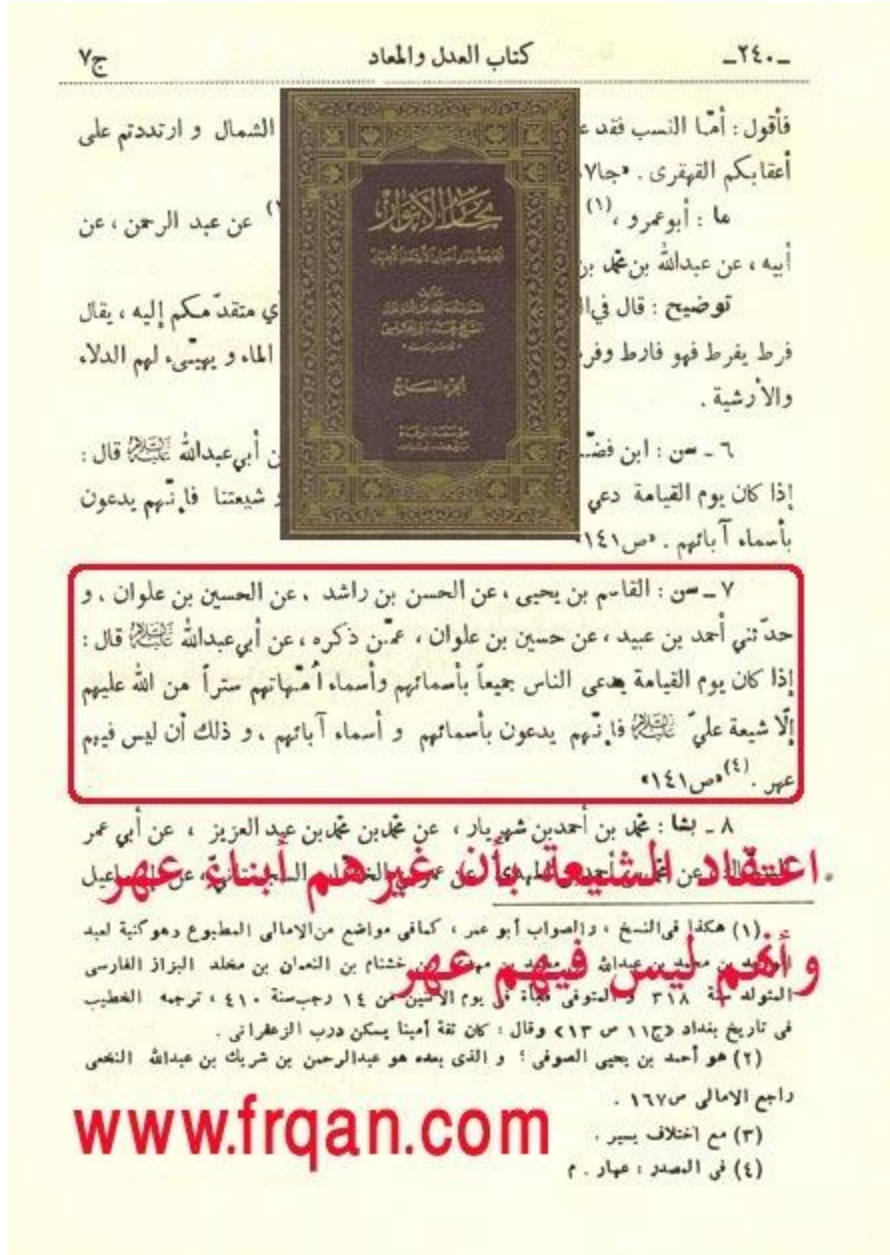 ـ٢٤٠ـ
كتاب العدل والمعاد
ج٧
فأقول : أمّا النسب فقد ع
الشمال و ارتددتم على
أعقابكم القهقرى . «جا٧
ما : أبوعمرو ،(١)
عن عبد الرحمن ، عن
أبيه ، عن عبدالله بن محمّد بن
توضيح : قال في ال
أي متقدّمكم إليه ، يقال
فرط يفرط فهو فارط وفر
الماء و يهيّىء لهم الدلاء
والأرشية .
بحار الأنوار
الجزء السابع
٦ ـ سن : ابن فضّـ
ن أبي عبدالله عليه السلام قال :
إذا كان يوم القيامة دعي
و شيعتنا فإنّهم يدعون
بأسماء آبائهم . «ص١٤١»
٧ ـ سن : القاسم بن يحيى ، عن الحسن بن راشد ، عن الحسين بن علوان ، و
حدّثني أحمد بن عبيد ، عن حسين بن علوان ، عمّن ذكره ، عن أبي عبدالله عليه السلام قال :
إذا كان يوم القيامة يدعى الناس جميعاً بأسمائهم وأسماء اُمّهاتهم ستراً من الله عليهم
إلّا شيعة عليّ عليه السلام فإنّهم يدعون بأسمائهم و أسماء آبائهم ، و ذلك أن ليس فيهم
عهر .(٤) «ص١٤١»
٨ ـ بشا : محمّد بن أحمدبن شهريار ، عن محمّدبن محمّدبن عبد العزيز ، عن أبي عمر
اعتقاد الشيعة بأن غيرهم أبناء عهر
وأنهم ليس فيهم عهر
(١) هكذا في النسخ ، والصواب أبو عمر ، كمافي مواضع من الامالي المطبوع وهو كنية لعبد
بن محمد بن عبدالله بن خشنام بن النعمان بن مخلد البزاز الفارسي
المتولد سنة ٣١٨ و المتوفى فجأة في يوم الاثنين من ١٤ رجب سنة ٤١٠ ، ترجمه الخطيب
في تاريخ بغداد «ج١١ ص ١٣» وقال : كان ثقة أمينا يسكن درب الزعفراني .
(٢) هو أحمد بن يحيى الصوفي ؛ و الذي بعده هو عبدالرحمن بن شريك بن عبدالله النخعي
راجع الامالي ص١٦٧ .
(٣) مع اختلاف يسير .
(٤) في المصدر : عهار . م
www.frqan.com